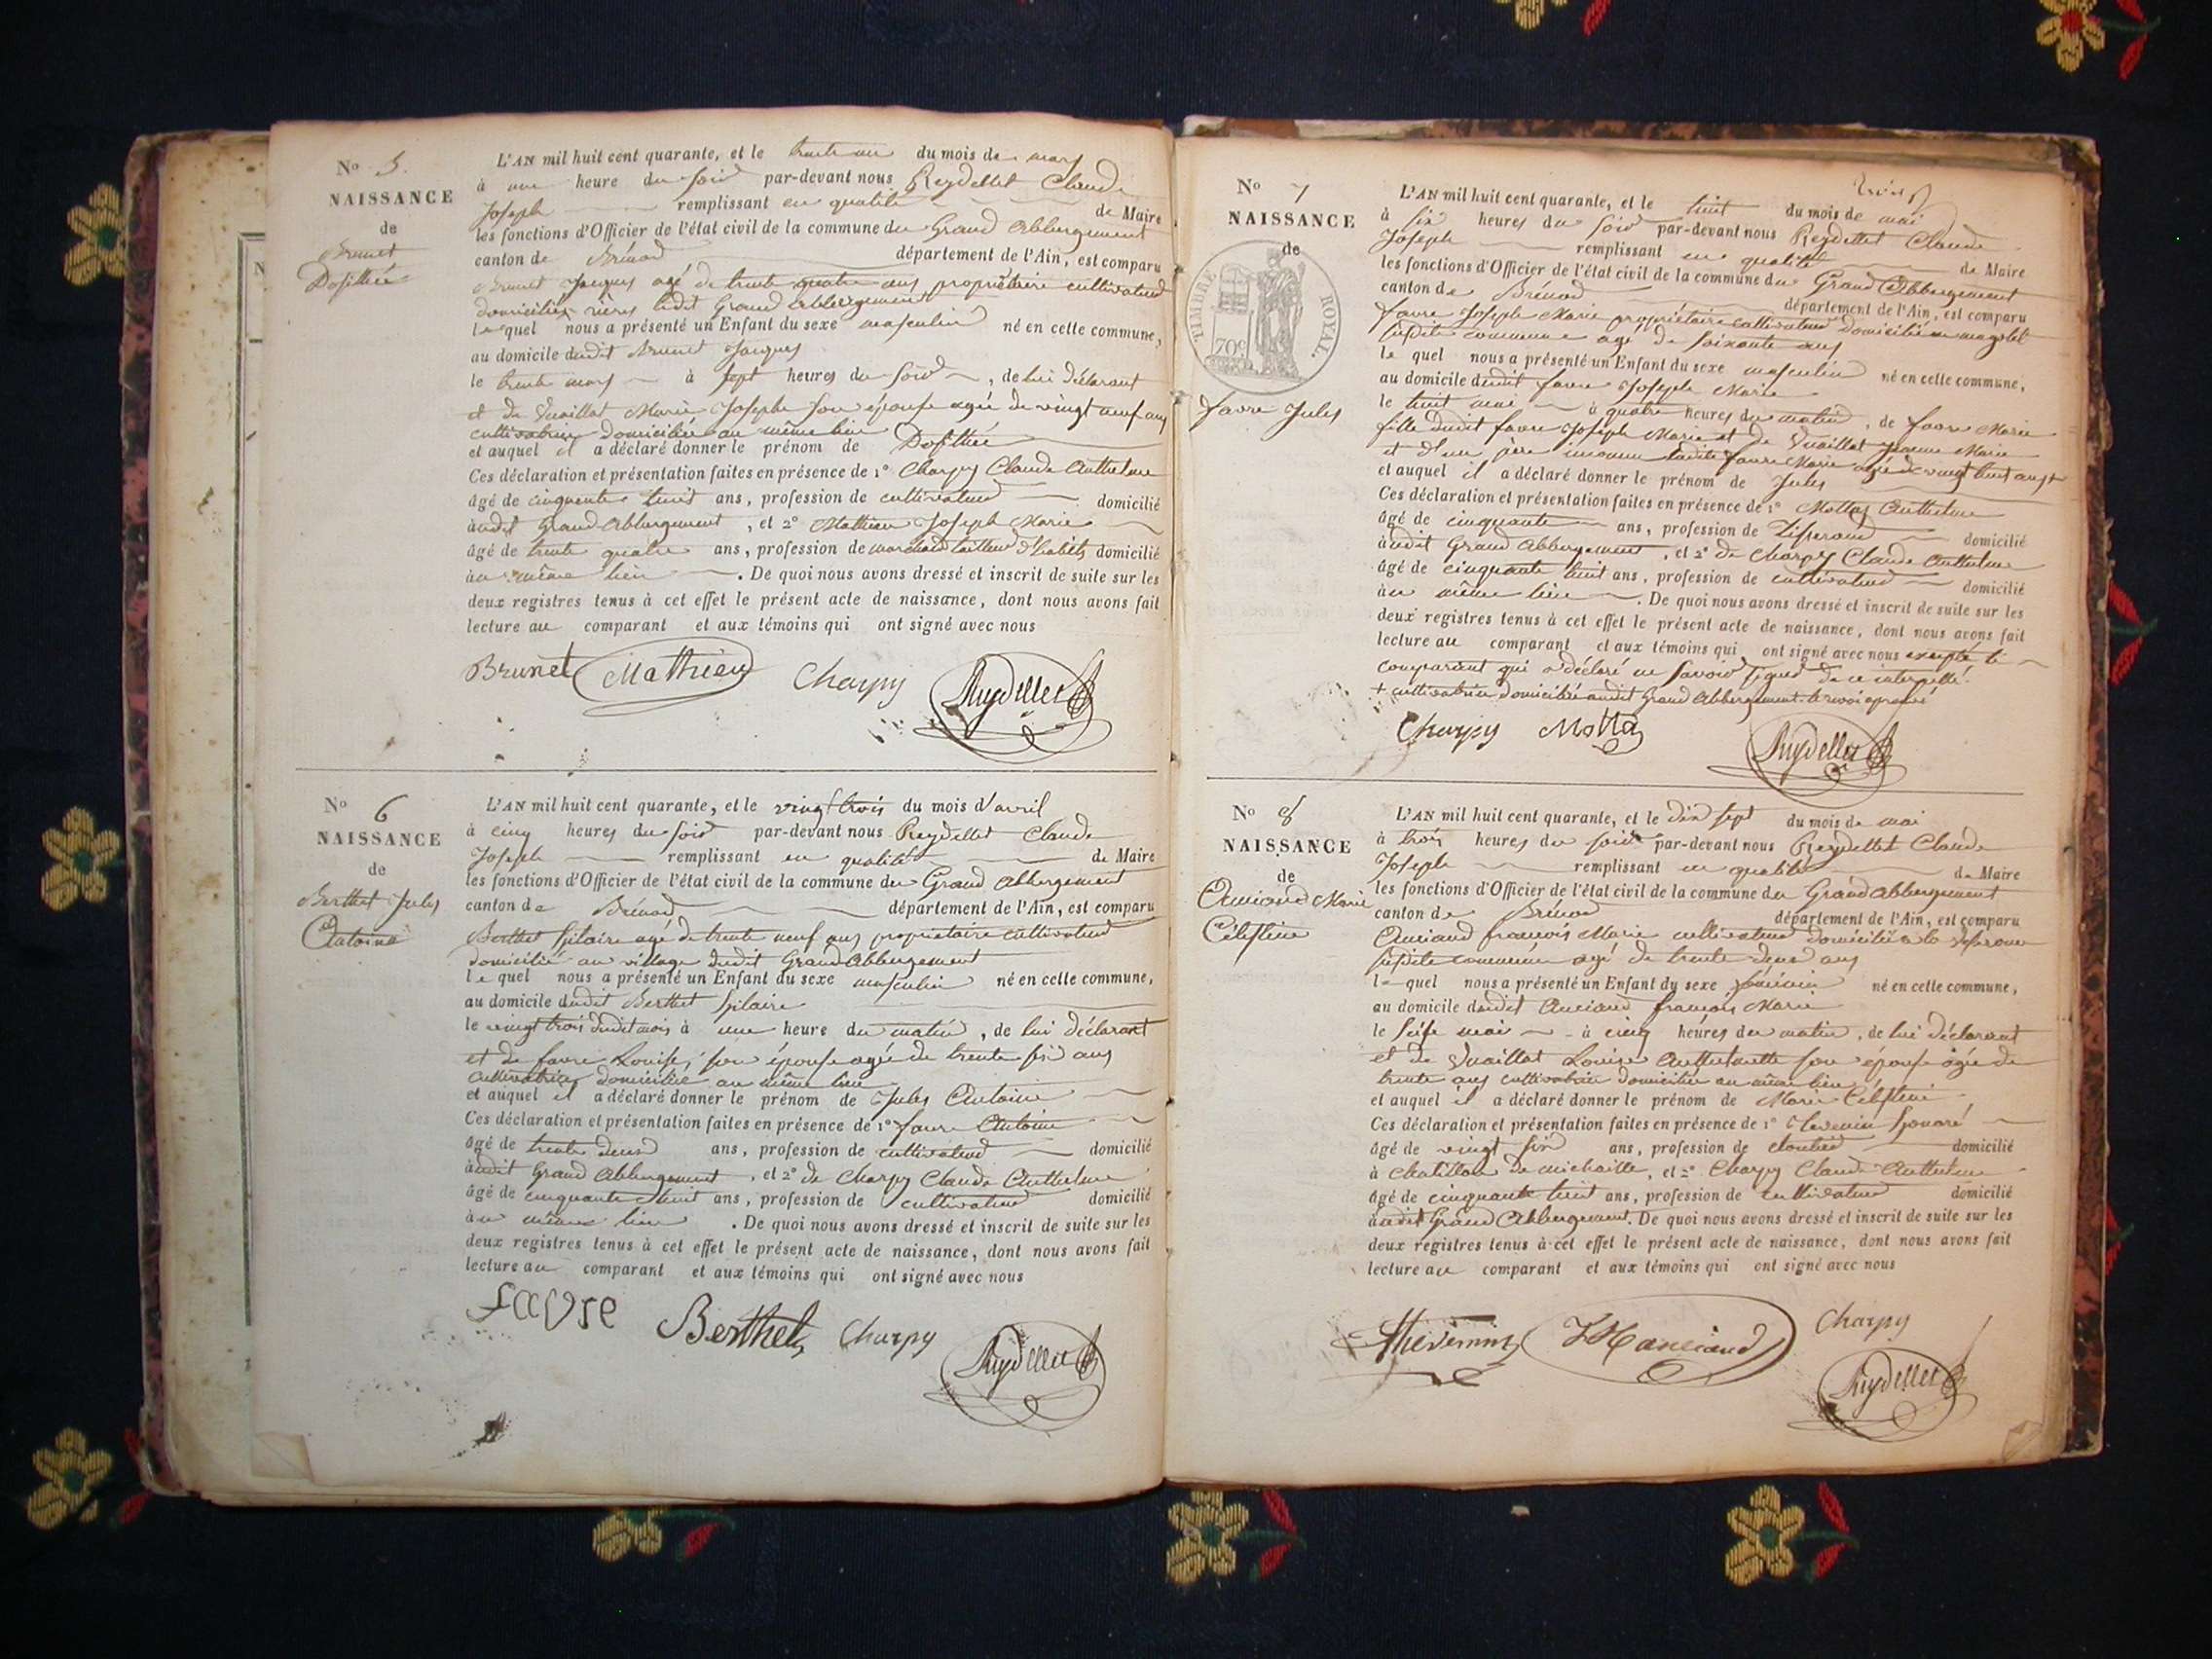 No 5.
NAISSANCE
de
Brunet
Dosithée
L'AN mil huit cent quarante, et le trente un du mois de mars
à une heure du soir par-devant nous Reydellet Claude
Joseph remplissant en qualité de Maire
les fonctions d'Officier de l'état civil de la commune du Grand Abbergement
canton de Brénod département de l'Ain, est comparu
Brunet Jacques agé de trente quatre ans propriétaire cultivateur
domicilié rière ledit Grand Abbergement
le quel nous a présenté un Enfant du sexe masculin né en cette commune,
au domicile dudit Brunet Jacques
le trente mars à sept heures du soir, de lui déclarant
et de Vuaillat Marie Josephe son épouse agée de vingt neuf ans
cultivatrice domiciliée au même lieu
et auquel il a déclaré donner le prénom de Dosithée
Ces déclaration et présentation faites en présence de 1° Charpy Claude Anthelme
âgé de cinquante huit ans, profession de cultivateur domicilié
audit Grand Abbergement, et 2° Mathieu Joseph Marie
âgé de trente quatre ans, profession de marchand tailleur d'habits domicilié
au même lieu. De quoi nous avons dressé et inscrit de suite sur les
deux registres tenus à cet effet le présent acte de naissance, dont nous avons fait
lecture au comparant et aux témoins qui ont signé avec nous
Brunet Mathieu Charpy Reydellet
No 6
NAISSANCE
de
Berthet Jules
Antoine
L'AN mil huit cent quarante, et le vingt trois du mois d'avril
à cinq heures du soir par-devant nous Reydellet Claude
Joseph remplissant en qualité de Maire
les fonctions d'Officier de l'état civil de la commune du Grand Abbergement
canton de Brénod département de l'Ain, est comparu
Berthet hilaire agé de trente neuf ans propriétaire cultivateur
domicilié au village dudit Grand Abbergement
le quel nous a présenté un Enfant du sexe masculin né en cette commune,
au domicile dudit Berthet hilaire
le vingt trois dudit mois à une heure du matin, de lui déclarant
et de favre Louise, son épouse agée de trente six ans
cultivatrice domiciliée au même lieu
et auquel il a déclaré donner le prénom de Jules Antoine
Ces déclaration et présentation faites en présence de 1° favre Antoine
âgé de trente deux ans, profession de cultivateur domicilié
audit Grand Abbergement, et 2° de Charpy Claude Anthelme
âgé de cinquante huit ans, profession de cultivateur domicilié
au même lieu. De quoi nous avons dressé et inscrit de suite sur les
deux registres tenus à cet effet le présent acte de naissance, dont nous avons fait
lecture au comparant et aux témoins qui ont signé avec nous
favre Berthet Charpy Reydellet
No 7
NAISSANCE
de
TIMBRE ROYAL.
70c
favre Jules
L'AN mil huit cent quarante, et le huit du mois de mai
à six heures du soir par-devant nous Reydellet Claude
Joseph remplissant en qualité de Maire
les fonctions d'Officier de l'état civil de la commune du Grand Abbergement
canton de Brénod département de l'Ain, est comparu
favre Joseph Marie propriétaire cultivateur domicilié
susdite commune agé de soixante ans
le quel nous a présenté un Enfant du sexe masculin né en cette commune,
au domicile dudit favre Joseph Marie
le huit mai à quatre heures du matin, de favre Marie
fille dudit favre Joseph Marie et de Vuaillat Jeanne Marie
et d'un père inconnu ladite favre Marie agée de vingt huit ans +
et auquel il a déclaré donner le prénom de Jules
Ces déclaration et présentation faites en présence de 1° Mottaz Anthelme
âgé de cinquante ans, profession de Tisserand domicilié
audit Grand Abbergement, et 2° de Charpy Claude Anthelme
âgé de cinquante huit ans, profession de cultivateur domicilié
au même lieu. De quoi nous avons dressé et inscrit de suite sur les
deux registres tenus à cet effet le présent acte de naissance, dont nous avons fait
lecture au comparant et aux témoins qui ont signé avec nous excepté le
comparant qui a déclaré ne savoir signer de ce interpellé.
+ cultivatrice domiciliée audit Grand Abbergement. le renvoi approuvé
Charpy Motta Reydellet
No 8
NAISSANCE
de
Anciand Marie
Célestine
L'AN mil huit cent quarante, et le dix sept du mois de mai
à trois heures du soir par-devant nous Reydellet Claude
Joseph remplissant en qualité de Maire
les fonctions d'Officier de l'état civil de la commune du Grand Abbergement
canton de Brénod département de l'Ain, est comparu
Anciand françois Marie cultivateur domicilié
susdite commune agé de trente deux ans
le quel nous a présenté un Enfant du sexe féminin né en cette commune,
au domicile dudit Anciand françois Marie
le seize mai à cinq heures du matin, de lui déclarant
et de Vuaillat Louise Anthelmette son épouse agée de
trente ans cultivatrice domiciliée au même lieu
et auquel il a déclaré donner le prénom de Marie Célestine
Ces déclaration et présentation faites en présence de 1° Thevenin honoré
âgé de vingt six ans, profession de cloutier domicilié
à Chatillon de michaille, et 2° Charpy Claude Anthelme
âgé de cinquante huit ans, profession de cultivateur domicilié
audit Grand Abbergement. De quoi nous avons dressé et inscrit de suite sur les
deux registres tenus à cet effet le présent acte de naissance, dont nous avons fait
lecture au comparant et aux témoins qui ont signé avec nous
Thevenin anciand Charpy
Reydellet